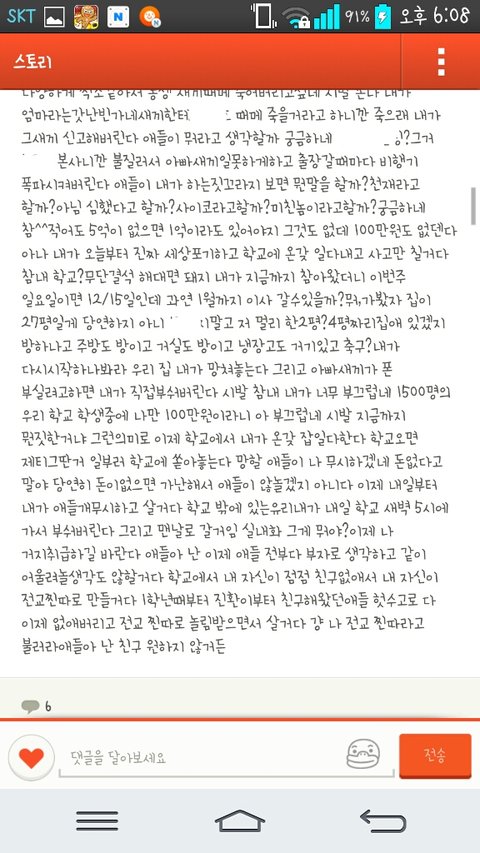 SKT 91% 오후 6:08
스토리
엄마라는갓난빈가네새끼한테 때메 죽을거라고 하니깐 죽으래 내가
그새끼 신고해버린다 애들이 뭐라고 생각할까 궁금하네 ?그거
본사니깐 불질러서 아빠새끼일못하게하고 출장갈때마다 비행기
폭파시켜버린다 애들이 내가 하는짓꼬라지 보면 뭔말을 할까?천재라고
할까?아님 심했다고 할까?사이코라고할까?미친놈이라고할까?궁금하네
참^^적어도 5억이 없으면 1억이라도 있어야지 그것도 없데 100만원도 없덴다
아나 내가 오늘부터 진짜 세상포기하고 학교에 온갖 일다내고 사고만 칠거다
참내 학교?무단결석 해대면 돼지 내가 지금까지 참아왔더니 이번주
일요일이면 12/15일인데 과연 1월까지 이사 갈수있을까?뭐,가봤자 집이
27평일게 당연하지 아니 말고 저 멀리 한2평?4평짜리집애 있겠지
방하나고 주방도 방이고 거실도 방이고 냉장고도 거기있고 축구?내가
다시시작하나봐라 우리 집 내가 망쳐놓는다 그리고 아빠새끼가 폰
부실려고하면 내가 직접부숴버린다 시발 참내 내가 너무 부끄럽네 1500명의
우리 학교 학생중에 나만 100만원이라니 아 부끄럽네 시발 지금까지
뭔짓한거냐 그런의미로 이제 학교에서 내가 온갖 잡일다한다 학교오면
제티그딴거 일부러 학교에 쏟아놓는다 망할 애들이 나 무시하겠네 돈없다고
말야 당연히 돈이없으면 가난해서 애들이 않놀겠지 아니다 이제 내일부터
내가 애들개무시하고 살거다 학교 밖에 있는유리내가 내일 학교 새벽 5시에
가서 부숴버린다 그리고 맨날로 갈거임 실내화 그게 뭐야?이제 나
거지취급하길 바란다 애들아 난 이제 애들 전부다 부자로 생각하고 같이
어울려놀생각도 않할거다 학교에서 내 자신이 점점 친구없애서 내 자신이
전교찐따로 만들거다 1학년때부터 진환이부터 친구해왔던애들 헛수고로 다
이제 없애버리고 전교 찐따로 놀림받으면서 살거다 걍 나 전교 찐따라고
불러라애들아 난 친구 원하지 않거든
6
댓글을 달아보세요
전송